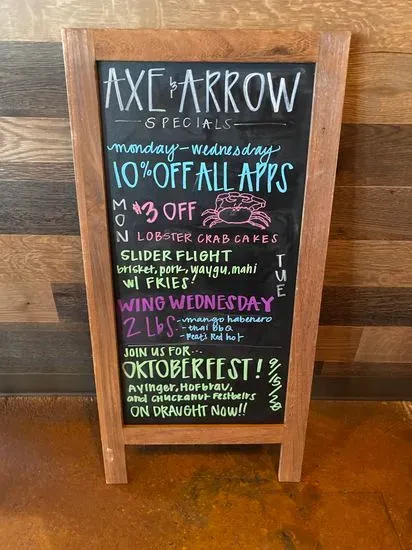 AXE & ARROW
SPECIALS
monday-wednesday
10% OFF ALL APPS
MON
$3 OFF
LOBSTER CRAB CAKES
TUE
SLIDER FLIGHT
brisket, pork, waygu, mahi
w/ FRIES!
WING WEDNESDAY
2 Lbs. - mango habenero
- thai BBQ
- Red hot
JOIN US FOR...
OKTOBERFEST!
Ayinger, Hofbrau,
and Chuckanut Festbeirs
ON DRAUGHT NOW!!